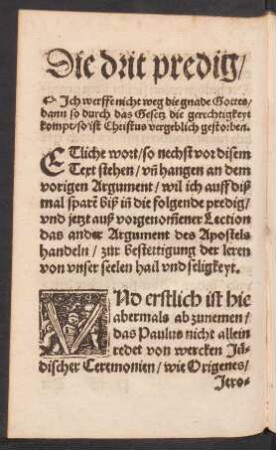 Die drit predig/
Ich werffe nicht weg die gnade Gottes/
dann so durch das Gesetz die gerechtigkeyt
kompt/so ist Christus vergeblich gestorben.
ETliche wort/so nechst vor disem
Text stehen/vñ hangen an dem
vorigen Argument/wil ich auff diß
mal sparē biß in die folgende predig/
vnd jetzt auß vorgenom̃ener Lection
das ander Argument des Apostels
handeln/zůr bestettigung der leren
von vnser seelen hail vnd seligkeyt.
VNd erstlich ist hie
abermals abzunemen/
das Paulus nicht allein
redet von wercken Jü-
discher Ceremonien/wie Origenes/
Jero-